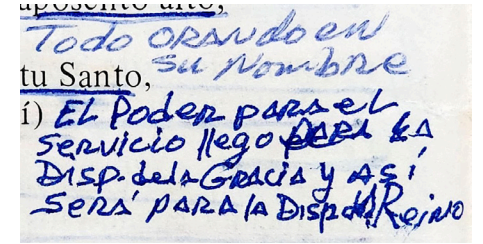 aposento alto,
Todo ORANdo en
tu Santo, su Nombre
í) EL Poder para el
servicio llego PARA LA
Disp. dela GRACIA y ASí
será PARA lA Disp. del Reino